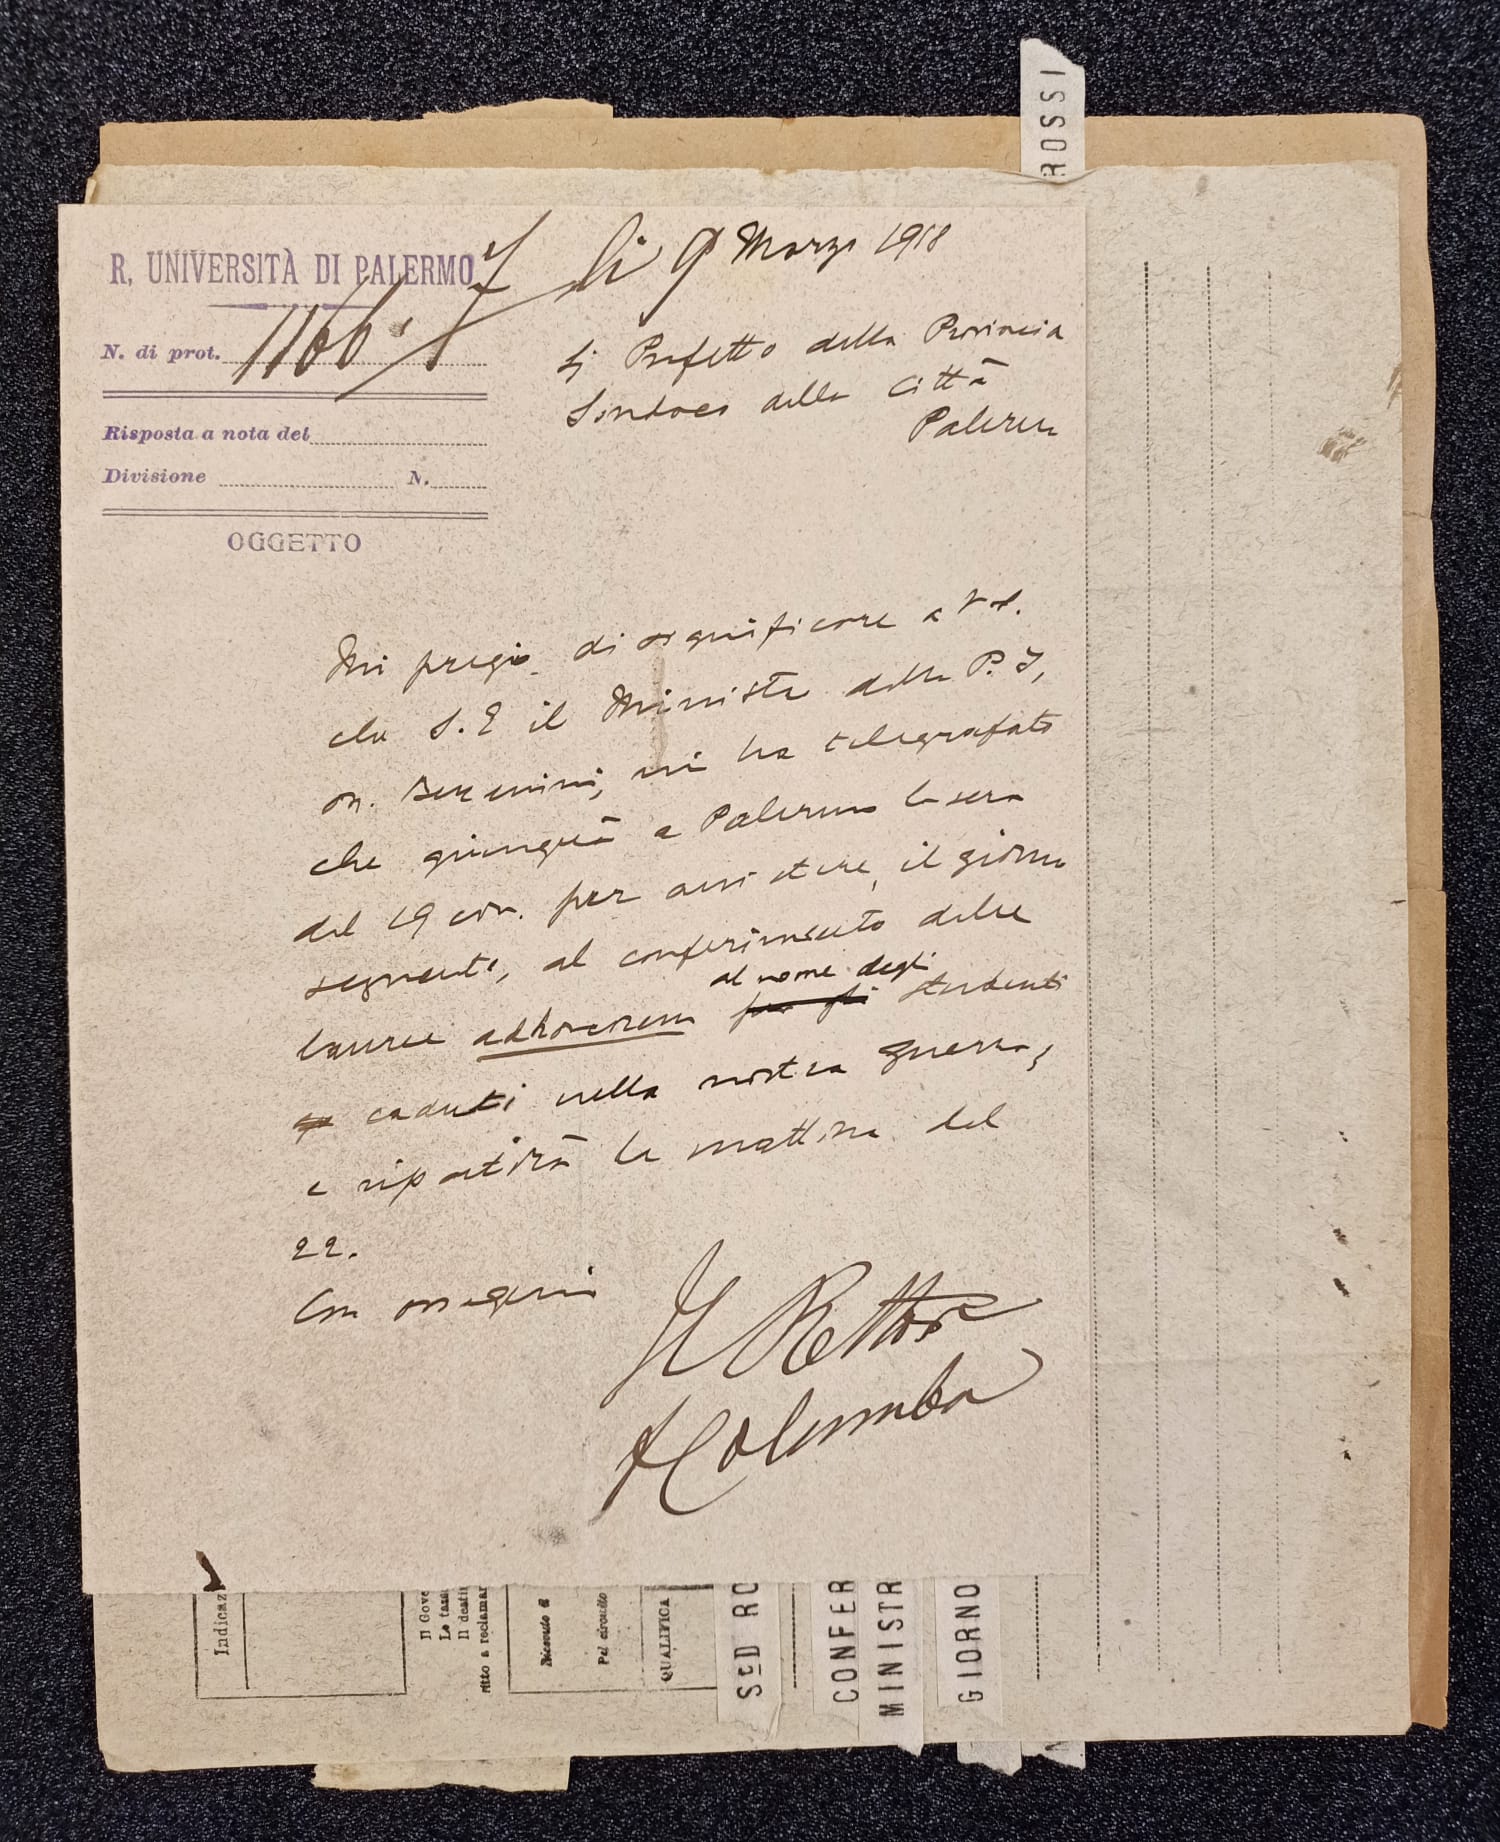 R. UNIVERSITÀ DI PALERMO
li 9 Marzo 1918
N. di prot. 1166
Risposta a nota del
Divisione N.
OGGETTO
Prefetto della Provincia
Sindaco della Città
Palermo
Mi pregio di significare a V.S.
che S.E il Ministro della P.I,
on. Berenini, mi ha telegrafato
che giungerà a Palermo la sera
del 19 corr. per assistere, il giorno
seguente, al conferimento delle
al nome degli
lauree adhonorem per gli studenti
caduti nella nostra guerra,
e ripartirà la mattina del
22.
Con ossequi
Il Rettore
Columba
ROSSI
Indicaz
Il Gove
Le tass
Il desti
itto a reclamar
Ricevuto il
Pel circuito
QUALIFICA
StD RO
CONFER
MINISTR
GIORNO